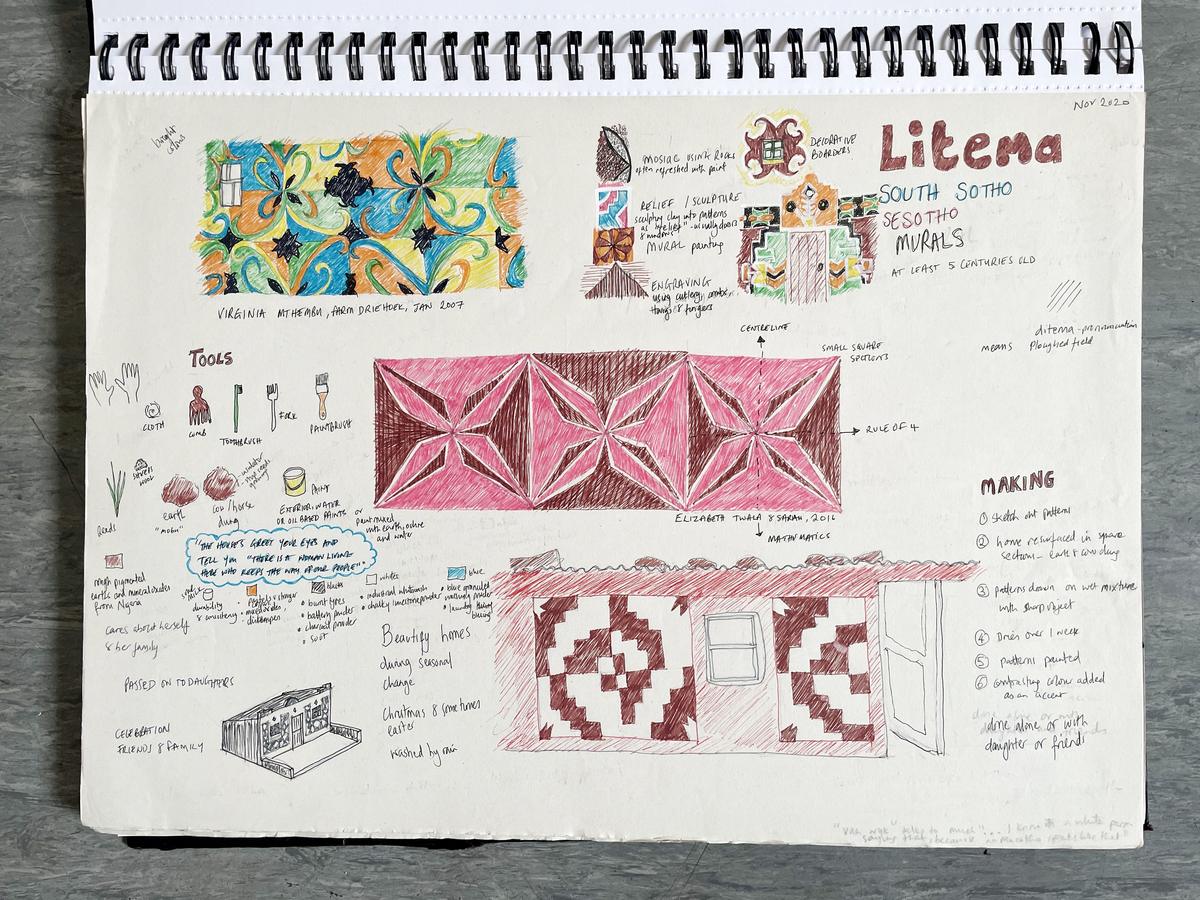 Nov 2020
bright
colours
Litema
SOUTH SOTHO
SESOTHO
MURALS
AT LEAST 5 CENTURIES OLD
ditema - pronunciation
means Ploughed field
MOSIAC USING ROCKS
often refreshed with paint
RELIEF / SCULPTURE
sculpting clay into patterns
as "relief" - usually doors
& windows
MURAL painting
ENGRAVING
using cutlery, combs,
& fingers
DECORATIVE
BOARDERS
VIRGINIA MTHEMBU, FARM DRIEHOEK, JAN 2007
TOOLS
CLOTH
COMB
TOOTHBRUSH
FORK
PAINTBRUSH
reeds
earth
"mobu"
cow/horse
dung
PAINT
EXTERIOR, WATER
OR OIL BASED PAINTS or
paint mixed
with earth, ochre
and water
"THE HOUSES GREET YOUR EYES AND
TELL YOU "THERE IS A WOMAN LIVING
HERE WHO KEEPS THE WAY OF OUR PEOPLE"
CENTRELINE
SMALL SQUARE
SECTIONS
RULE OF 4
MATHMATICS
ELIZABETH TWALA & SARAH, 2016
pigmented
earth and mineral oxides
from
durability
& consistency
black
• burnt tyres
• battery powder
• charcoal powder
• soot
white
• industrial whitewash
• chalky limestone powder
blue
• blue granulated
washing powder
• laundry
blueing
cares about herself
& her family
PASSED ON TO DAUGHTERS
CELEBRATION
FRIENDS & FAMILY
Beautify homes
during seasonal
change
Christmas & sometimes
easter
washed by rain
MAKING
① sketch out patterns
② home resurfaced in square
sections - earth & cow dung
③ patterns drawn on wet mixture
with sharp object
④ Dries over 1 week
⑤ patterns painted
⑥ contrasting colour added
as an accent
done alone or with
daughter or friends